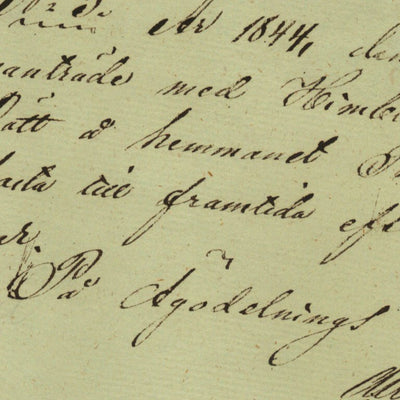 År 1844, den
manträde med Himle
Rätt å hemmanet
till framtida eft
På Ägodelnings